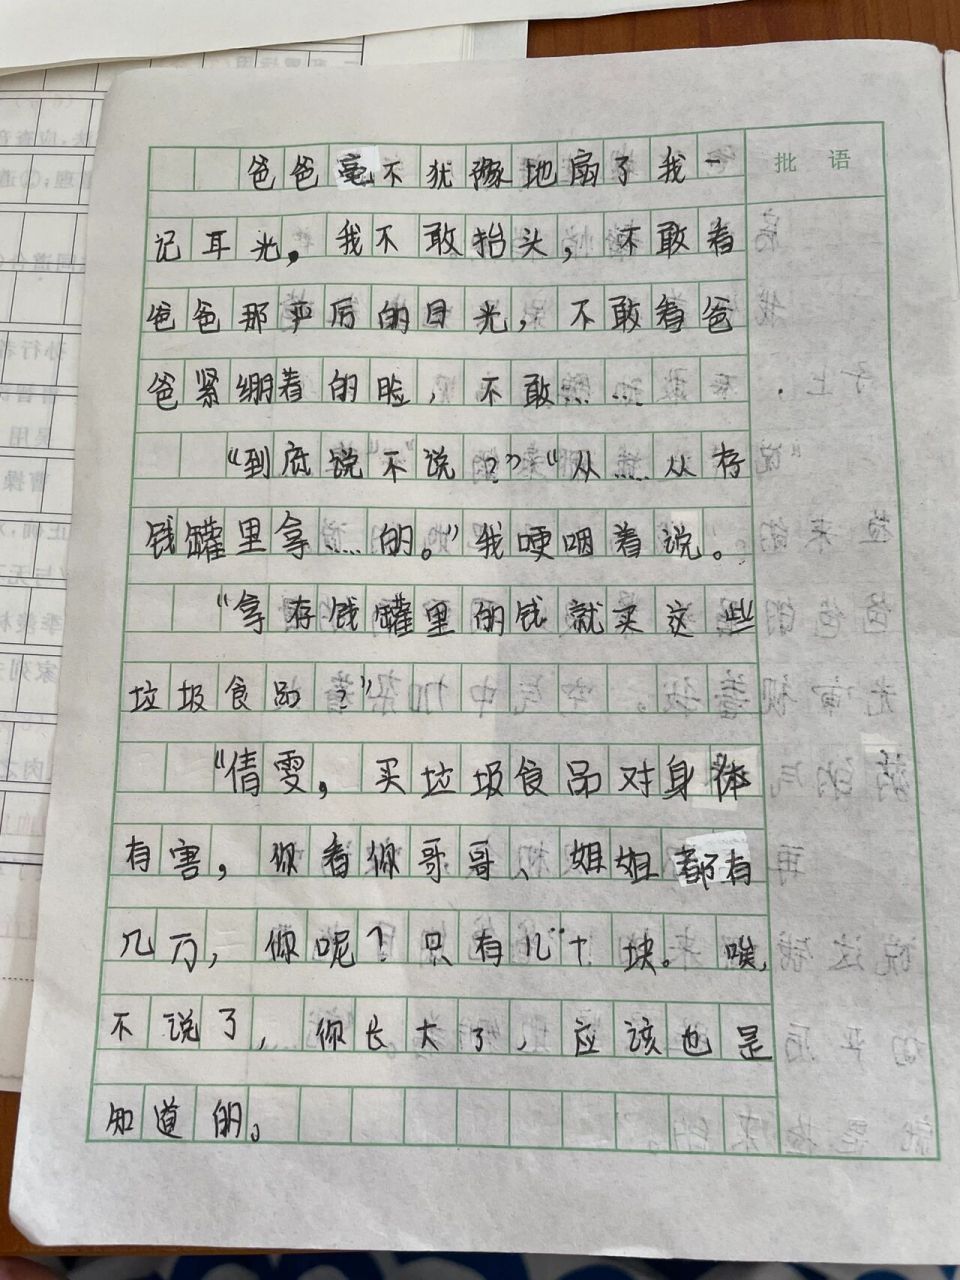 批语
爸爸毫不犹豫地扇了我一
记耳光。我不敢抬头，不敢看
爸爸那严厉的目光，不敢看爸
爸紧绷着的脸，不敢……
“到底说不说？”“从……从存
钱罐里拿……的。”我哽咽着说。
“拿存钱罐里的钱就买这些
垃圾食品？”
“倩雯，买垃圾食品对身体
有害，你看你哥哥、姐姐都有
几万，你呢？只有几十块。唉，
不说了，你长大了，应该也是
知道的。